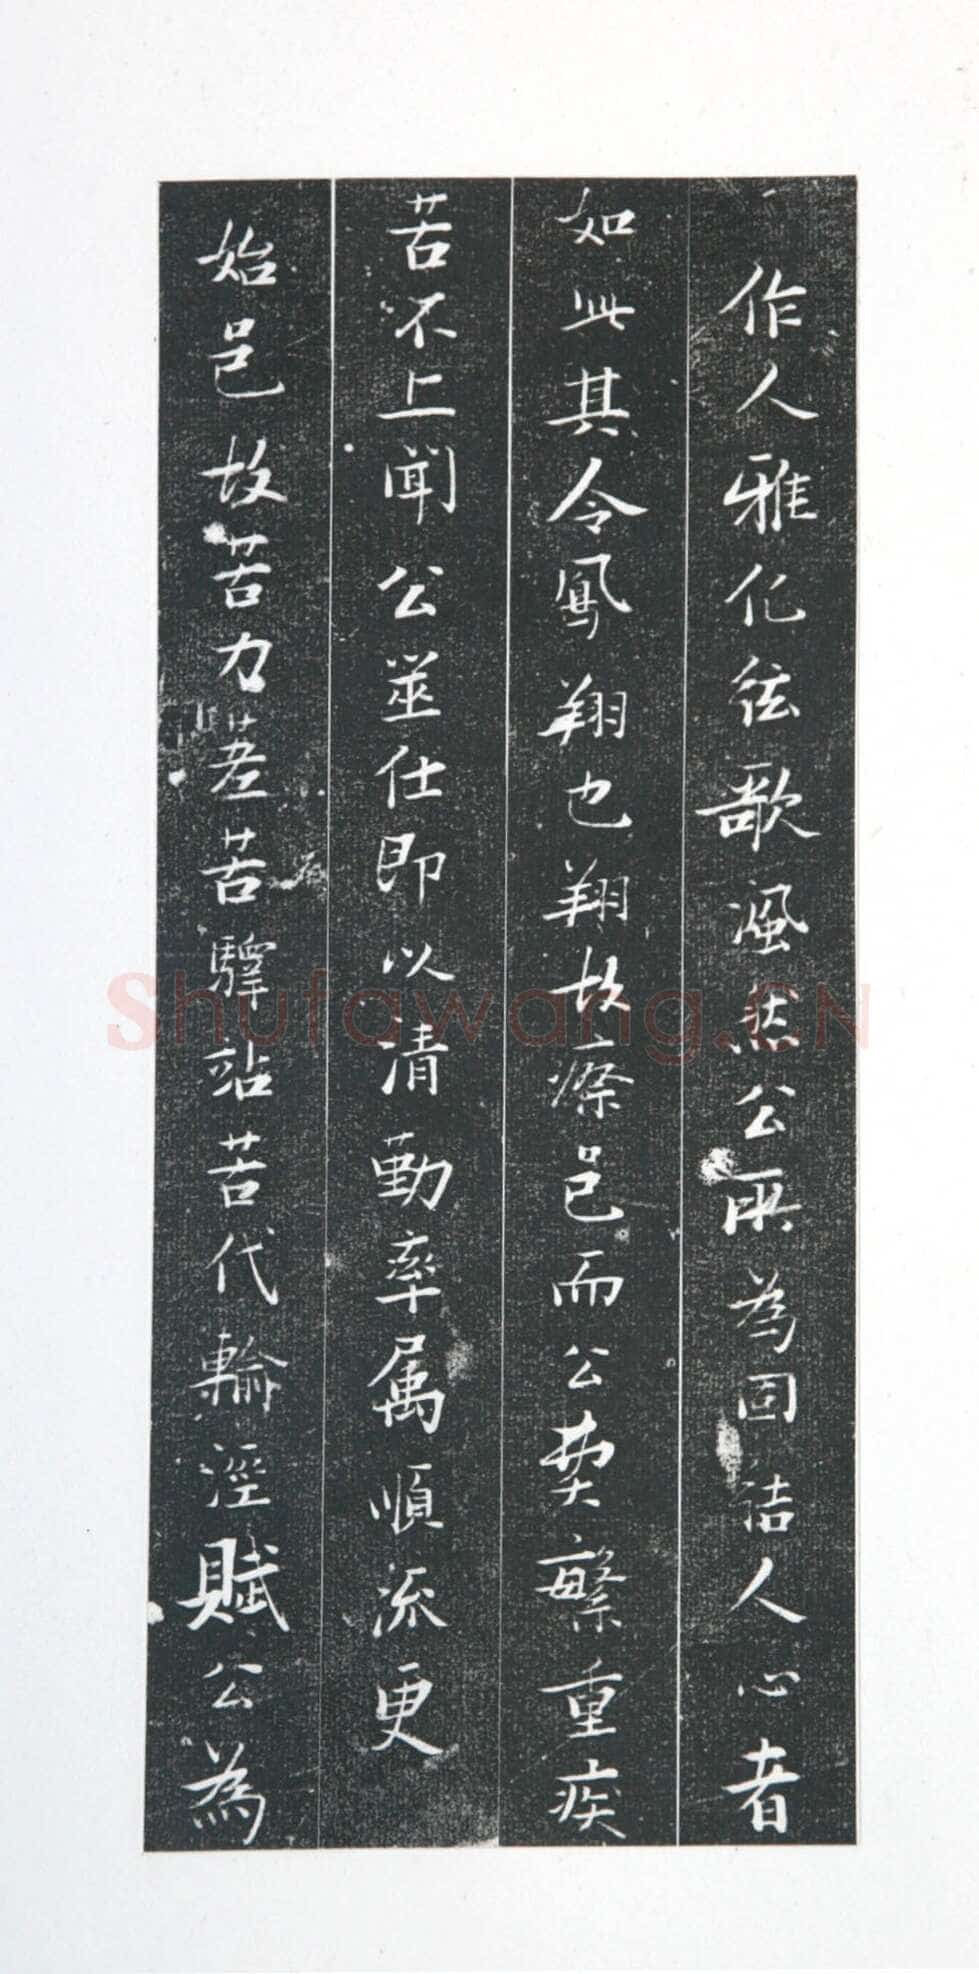 作人雅化弦歌渢然公所為固結人心者
如此其令鳳翔也翔故瘵邑而公費繁重疾
苦不上聞公筮仕即以清勤率属順流更
始邑故苦力差苦驛站苦代輸涇賦公為
Shufawang.CN